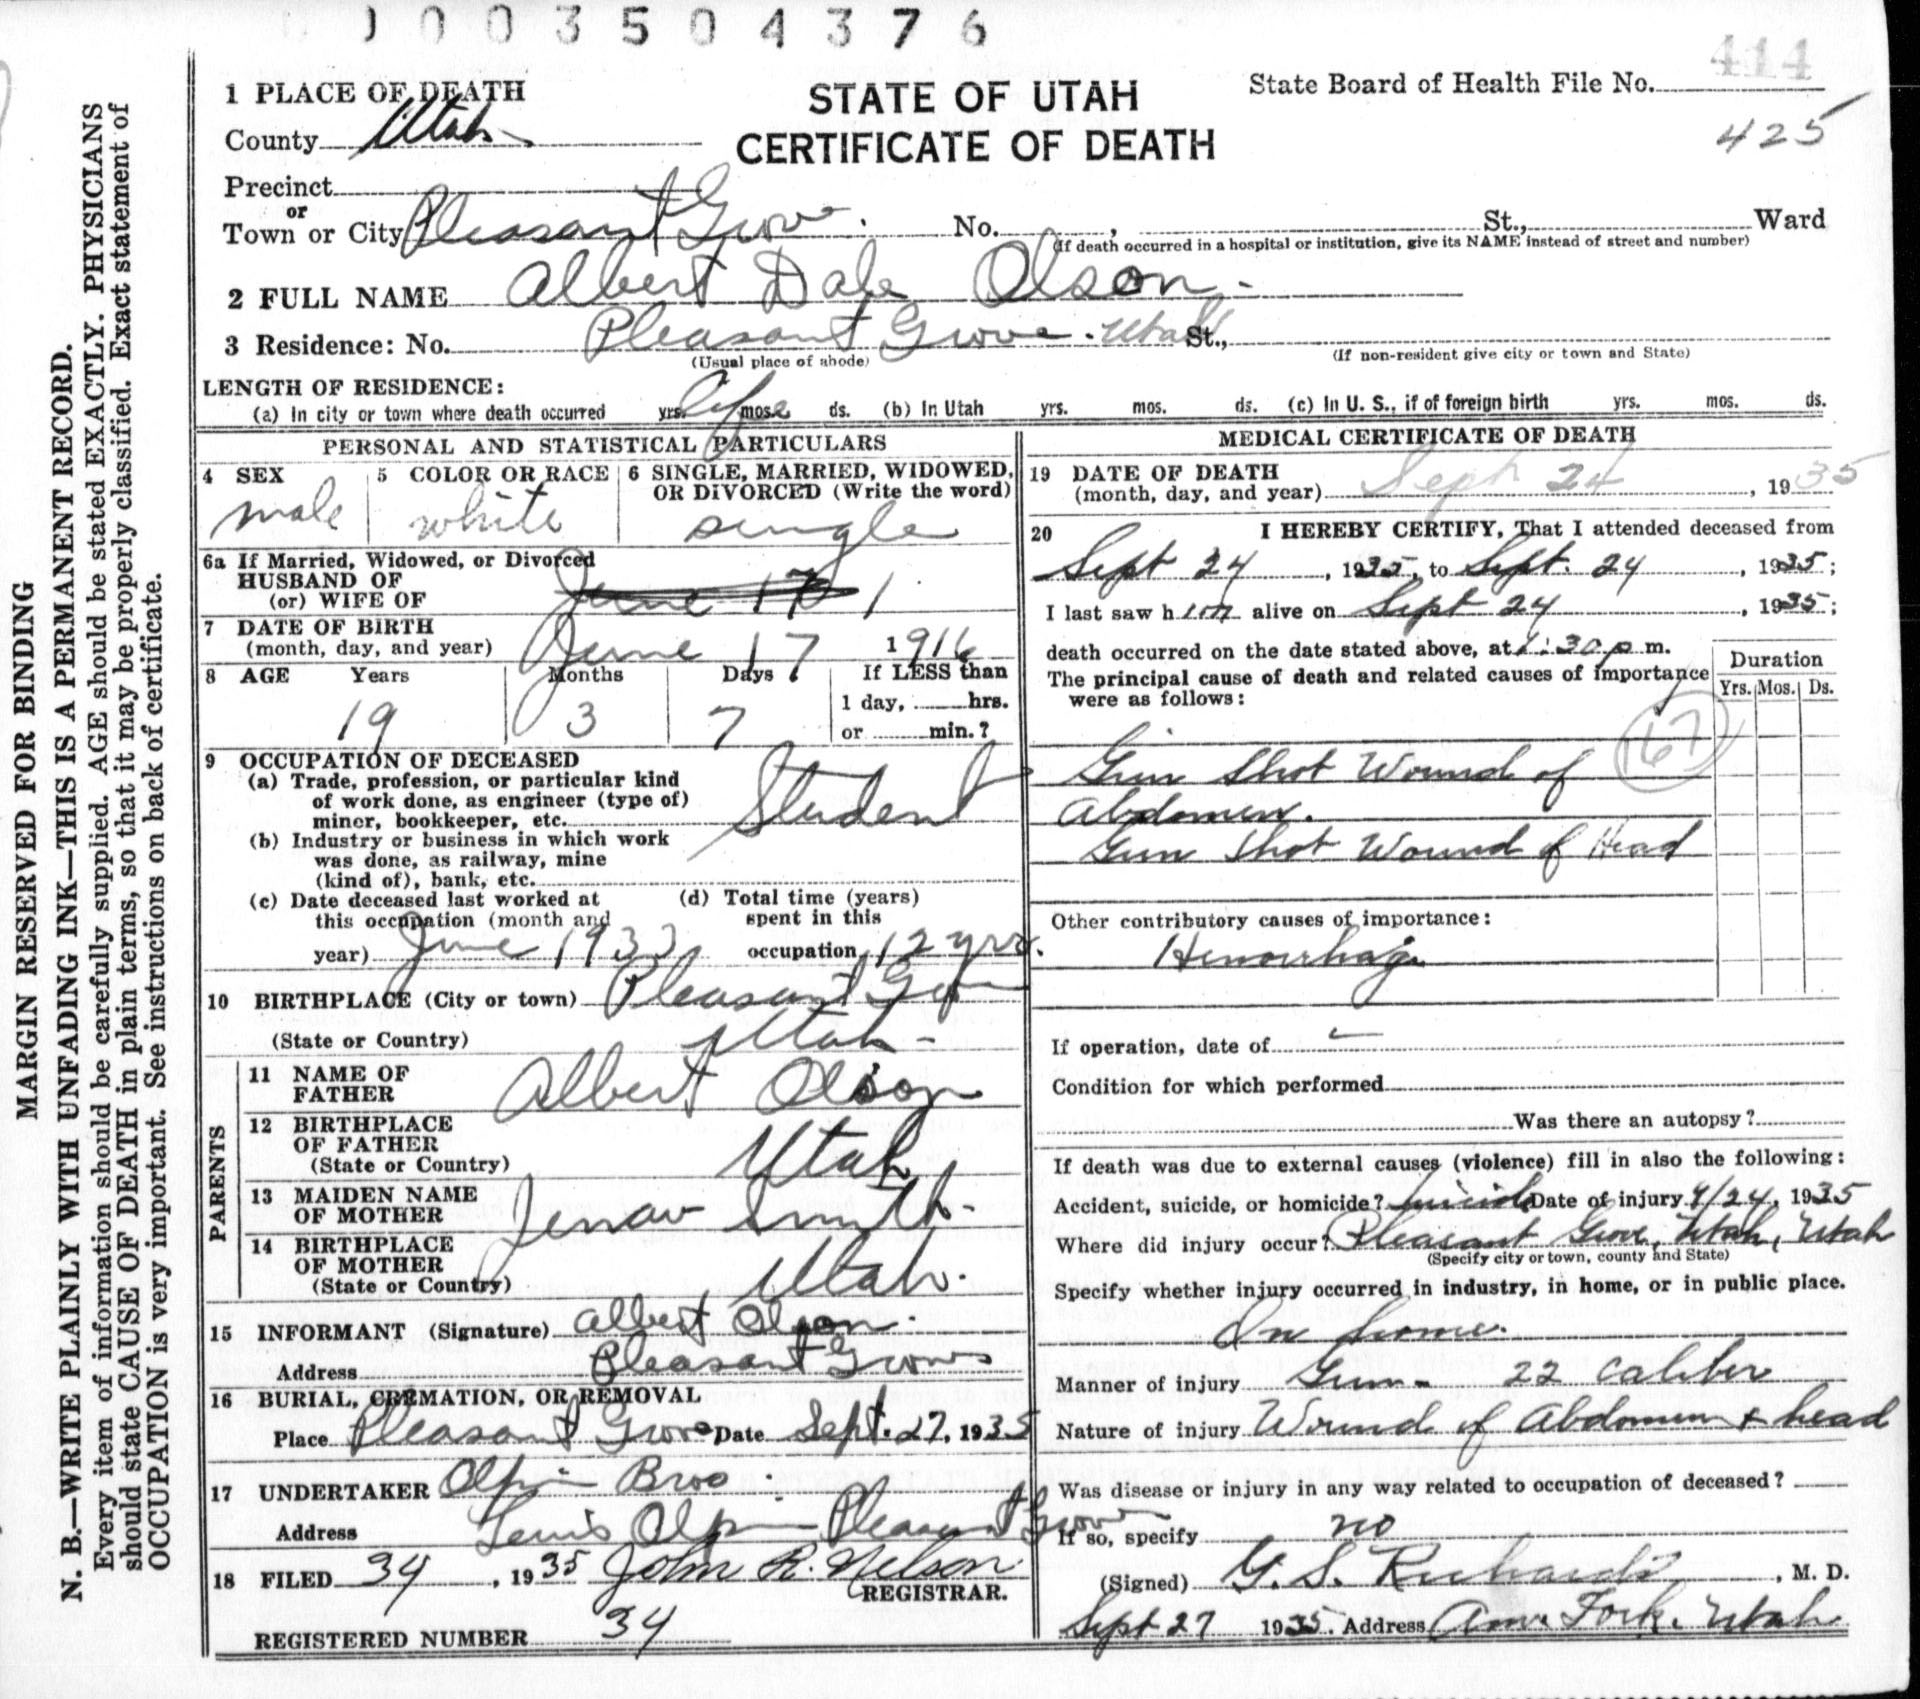 0003504376
414
1 PLACE OF DEATH
STATE OF UTAH
State Board of Health File No.
County Utah
CERTIFICATE OF DEATH
425
Precinct
or
Town or City Pleasant Grove. No. , St., Ward
(If death occurred in a hospital or institution, give its NAME instead of street and number)
2 FULL NAME Albert Dale Olson
3 Residence: No. Pleasant Grove. Utah St.,
(Usual place of abode) (If non-resident give city or town and State)
LENGTH OF RESIDENCE:
(a) In city or town where death occurred yrs. Life mos. ds. (b) In Utah yrs. mos. ds. (c) In U. S., if of foreign birth yrs. mos. ds.
PERSONAL AND STATISTICAL PARTICULARS
4 SEX male
5 COLOR OR RACE white
6 SINGLE, MARRIED, WIDOWED, OR DIVORCED (Write the word) single
6a If Married, Widowed, or Divorced
HUSBAND OF
(or) WIFE OF June 17
7 DATE OF BIRTH
(month, day, and year) June 17 1916
8 AGE Years Months Days If LESS than
1 day, hrs.
19 3 7 or min.?
9 OCCUPATION OF DECEASED
(a) Trade, profession, or particular kind
of work done, as engineer (type of)
miner, bookkeeper, etc. Student
(b) Industry or business in which work
was done, as railway, mine
(kind of), bank, etc.
(c) Date deceased last worked at
this occupation (month and
year) June 1933
(d) Total time (years)
spent in this
occupation 12 yrs.
10 BIRTHPLACE (City or town) Pleasant Grove
(State or Country) Utah
PARENTS
11 NAME OF
FATHER Albert Olson
12 BIRTHPLACE
OF FATHER
(State or Country) Utah
13 MAIDEN NAME
OF MOTHER Smith
14 BIRTHPLACE
OF MOTHER
(State or Country) Utah.
15 INFORMANT (Signature) Albert Olson.
Address Pleasant Grove
16 BURIAL, CREMATION, OR REMOVAL
Place Pleasant Grove Date Sept. 27, 1935
17 UNDERTAKER Olpin Bros
Address Lewis Olpin Pleasant Grove
18 FILED 34, 1935 John R. Nelson
REGISTRAR.
REGISTERED NUMBER 34
MEDICAL CERTIFICATE OF DEATH
19 DATE OF DEATH
(month, day, and year) Sept 24, 1935
20 I HEREBY CERTIFY, That I attended deceased from
Sept 24, 1935, to Sept. 24, 1935;
I last saw him alive on Sept 24, 1935;
death occurred on the date stated above, at 1:30 p m.
The principal cause of death and related causes of importance
were as follows:
Duration
Yrs. Mos. Ds.
167
Gun Shot Wound of
Abdomen.
Gun Shot Wound of Head
Other contributory causes of importance:
Hemorrhage
If operation, date of
Condition for which performed
Was there an autopsy?
If death was due to external causes (violence) fill in also the following:
Accident, suicide, or homicide? Suicide Date of injury 9/24, 1935
Where did injury occur? Pleasant Grove, Utah, Utah
(Specify city or town, county and State)
Specify whether injury occurred in industry, in home, or in public place.
In home.
Manner of injury Gun- 22 caliber
Nature of injury Wound of Abdomen & head
Was disease or injury in any way related to occupation of deceased?
If so, specify no
(Signed) G. S. Richards, M. D.
Sept 27 1935. Address Am. Fork. Utah
MARGIN RESERVED FOR BINDING
N. B.—WRITE PLAINLY WITH UNFADING INK—THIS IS A PERMANENT RECORD.
Every item of information should be carefully supplied. AGE should be stated EXACTLY. PHYSICIANS
should state CAUSE OF DEATH in plain terms, so that it may be properly classified. Exact statement of
OCCUPATION is very important. See instructions on back of certificate.